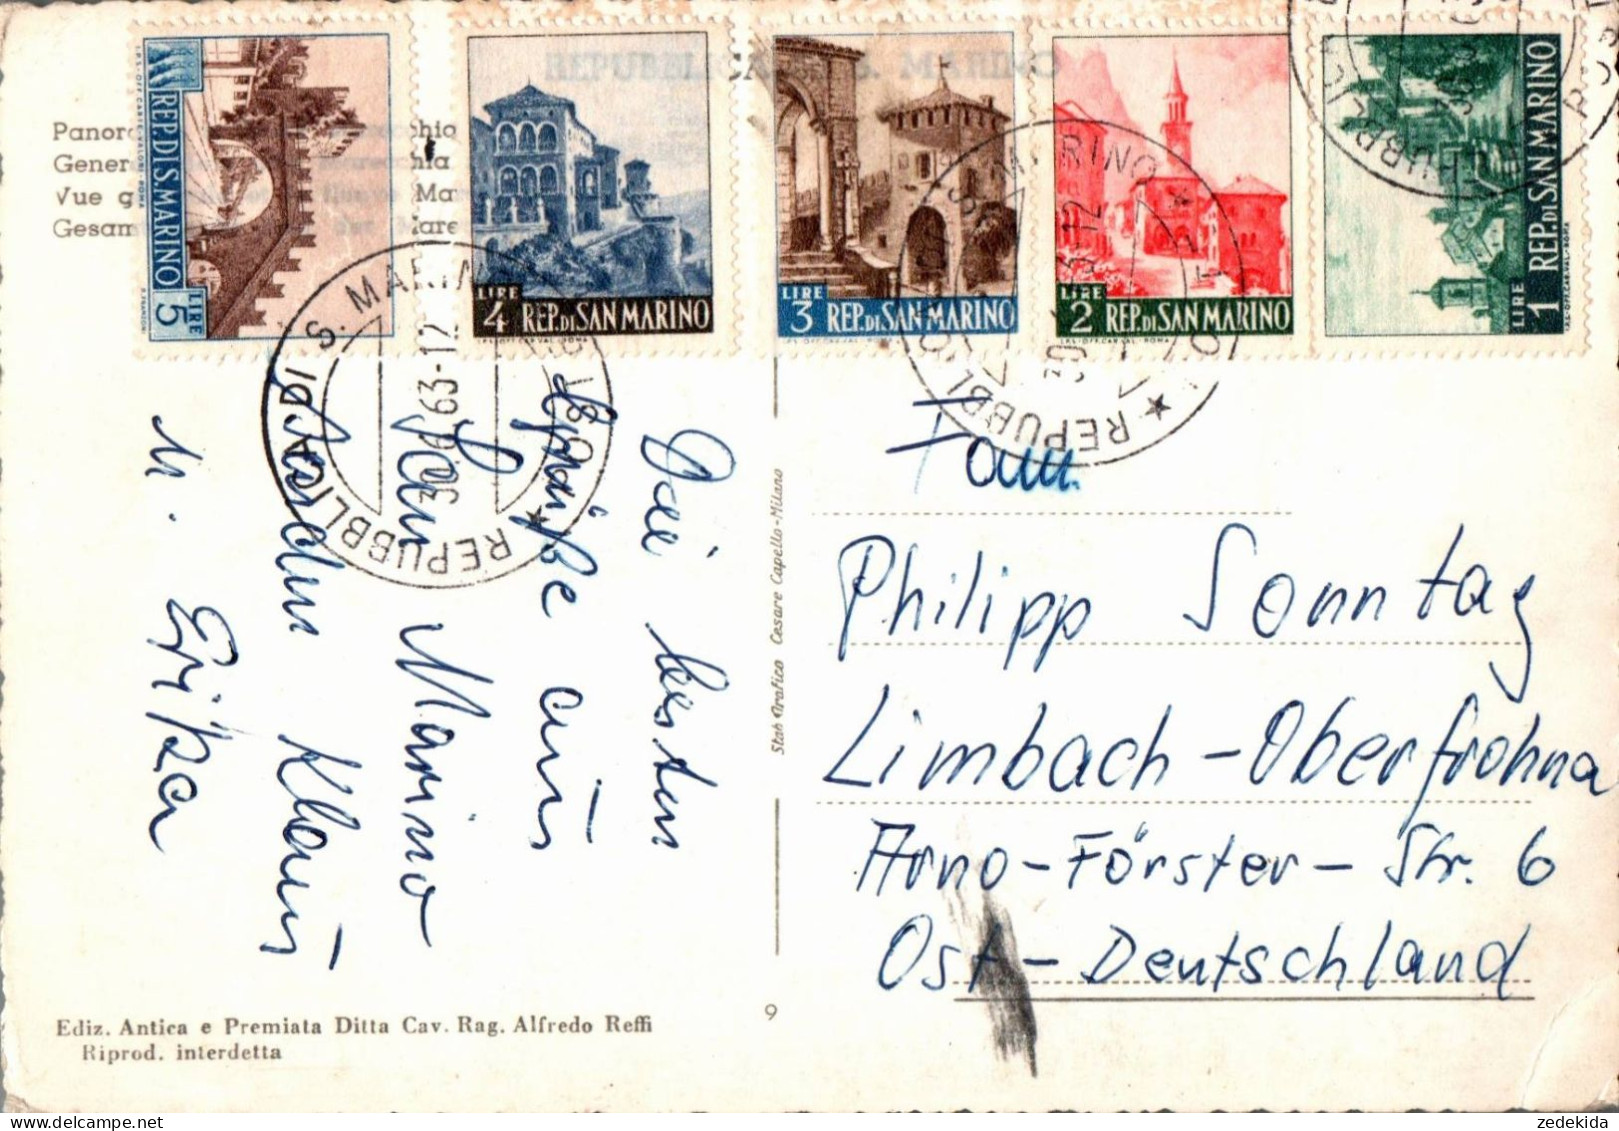 REPUBBLICA S. MARINO
Panor chia
Gener Marecchia
Vue g fleuve Ma
Gesam der Mare
REP. DI S. MARINO
LIRE 5
LIRE 4 REP. DI SAN MARINO
I.P.S.-OFF. CARVAL.-ROMA
LIRE 3 REP. DI SAN MARINO
LIRE 2 REP. DI SAN MARINO
LIRE 1 REP. DI SAN MARINO
REPUBBLICA DI S. MARINO
30.6.63-12
REPUBBLICA S. MARINO
12
REPUBBLIC
Die besten
Grüße aus
San Marino
senden Klaus
u.
Fam.
Philipp Sonntag
Limbach-Oberfrohna
Arno-Förster-Str. 6
Ost-Deutschland
Stab Grafico Cesare Capello-Milano
Ediz. Antica e Premiata Ditta Cav. Rag. Alfredo Reffi
Riprod. interdetta
9
zedekida